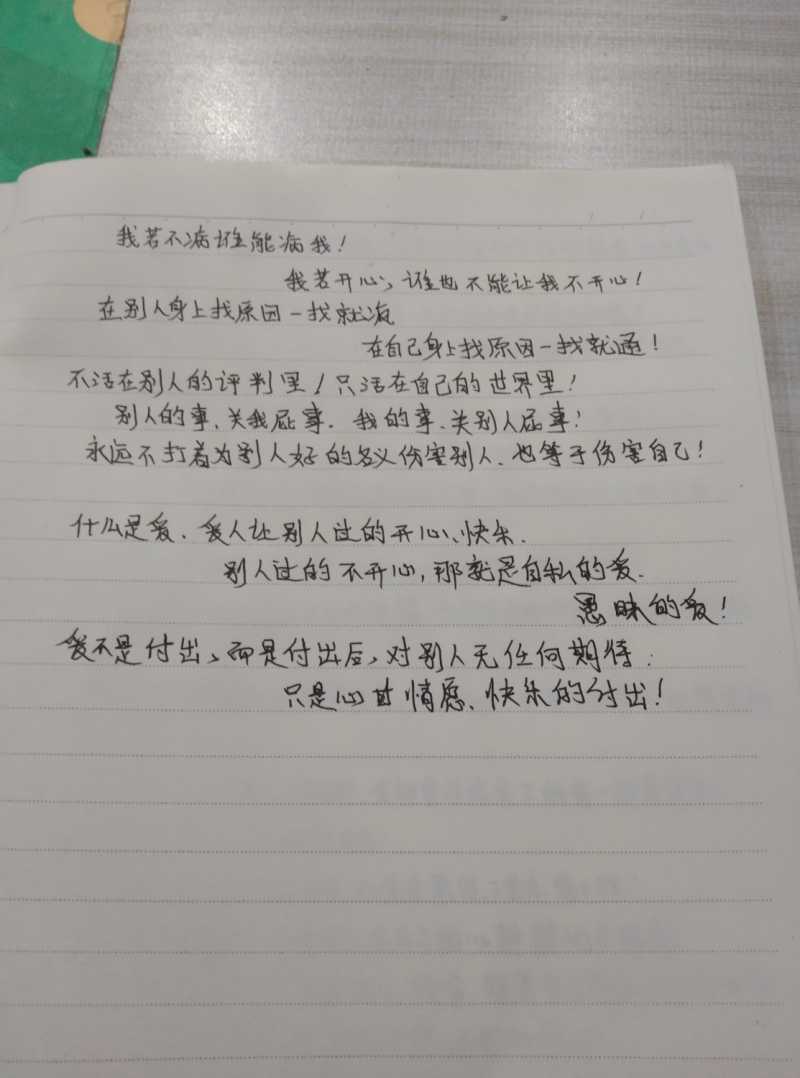 我若不病谁能病我！
我若开心、谁也不能让我不开心！
在别人身上找原因一找就疯
在自己身上找原因一找就通！
不活在别人的评判里！只活在自己的世界里！
别人的事、关我屁事. 我的事、关别人屁事！
永远不打着为别人好的名义伤害别人、也等于伤害自己！
什么是爱、爱人让别人过的开心、快乐.
别人过的不开心，那就是自私的爱.
愚昧的爱！
爱不是付出、而是付出后、对别人无任何期待.
只是心甘情愿、快乐的付出！